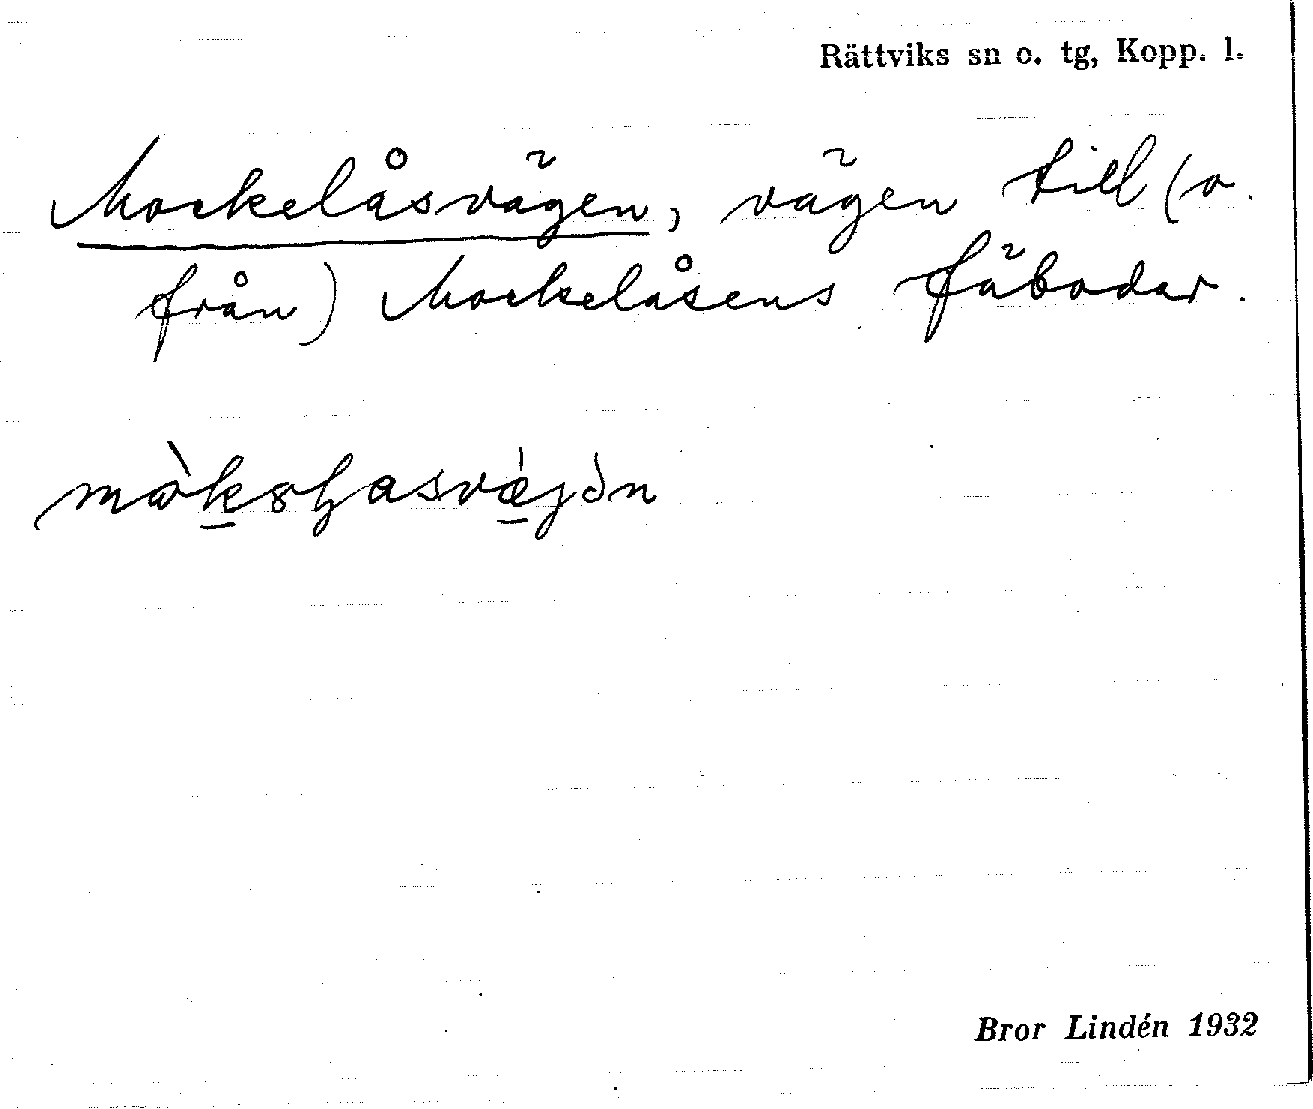 Rättviks sn o. tg, Kopp. l.
Mockelåsvägen, vägen till (o.
från) Mockelåsens fäbodar.
Bror Lindén 1932